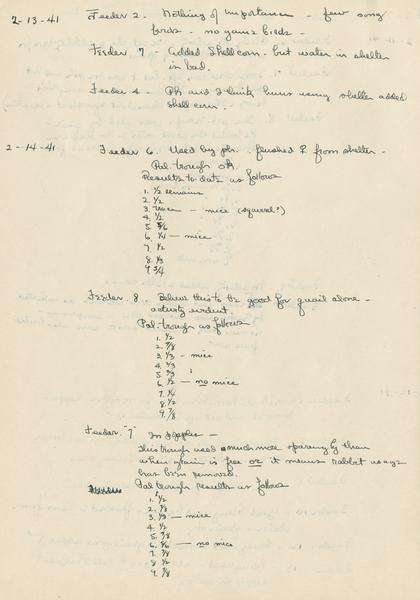 2-13-41 Feeder 2 - Nothing of importance - few song
birds - no game birds -
Feeder 7 - Added Shell corn - but water in shelter
is bad.
Feeder 4 - Ph and I think huns using shelter added
shell corn -
2-14-41 Feeder 6. Used by ph. flushed ♀ from shelter -
Pal. trough ok.
Results to date as follows
1. 1/2 remains
2. 1/2
3. trace - mice (squirrel?)
4. 1/2
5. 5/6
6. 1/4 - mice
7. 1/2
8. 1/3
9. 3/4
Feeder 8. Believe this to be good for quail alone -
activity evident.
Pal trough as follows
1. 1/2
2. 7/8
3. 1/3 - mice
4. 1/3
5.
6. 1/2 - no mice
7. 1/4
8. 1/2
9. 7/8
Feeder "7" In apples -
This trough used much more sparingly than
when grain is free or it means rabbit usage
has been removed.
Pal trough results as follows
1. 1/2
2. 7/8
3. 1/3 - mice
4. 1/2
5. 7/8
6. - no mice
7. 7/8
8. 1/2
9. 7/8